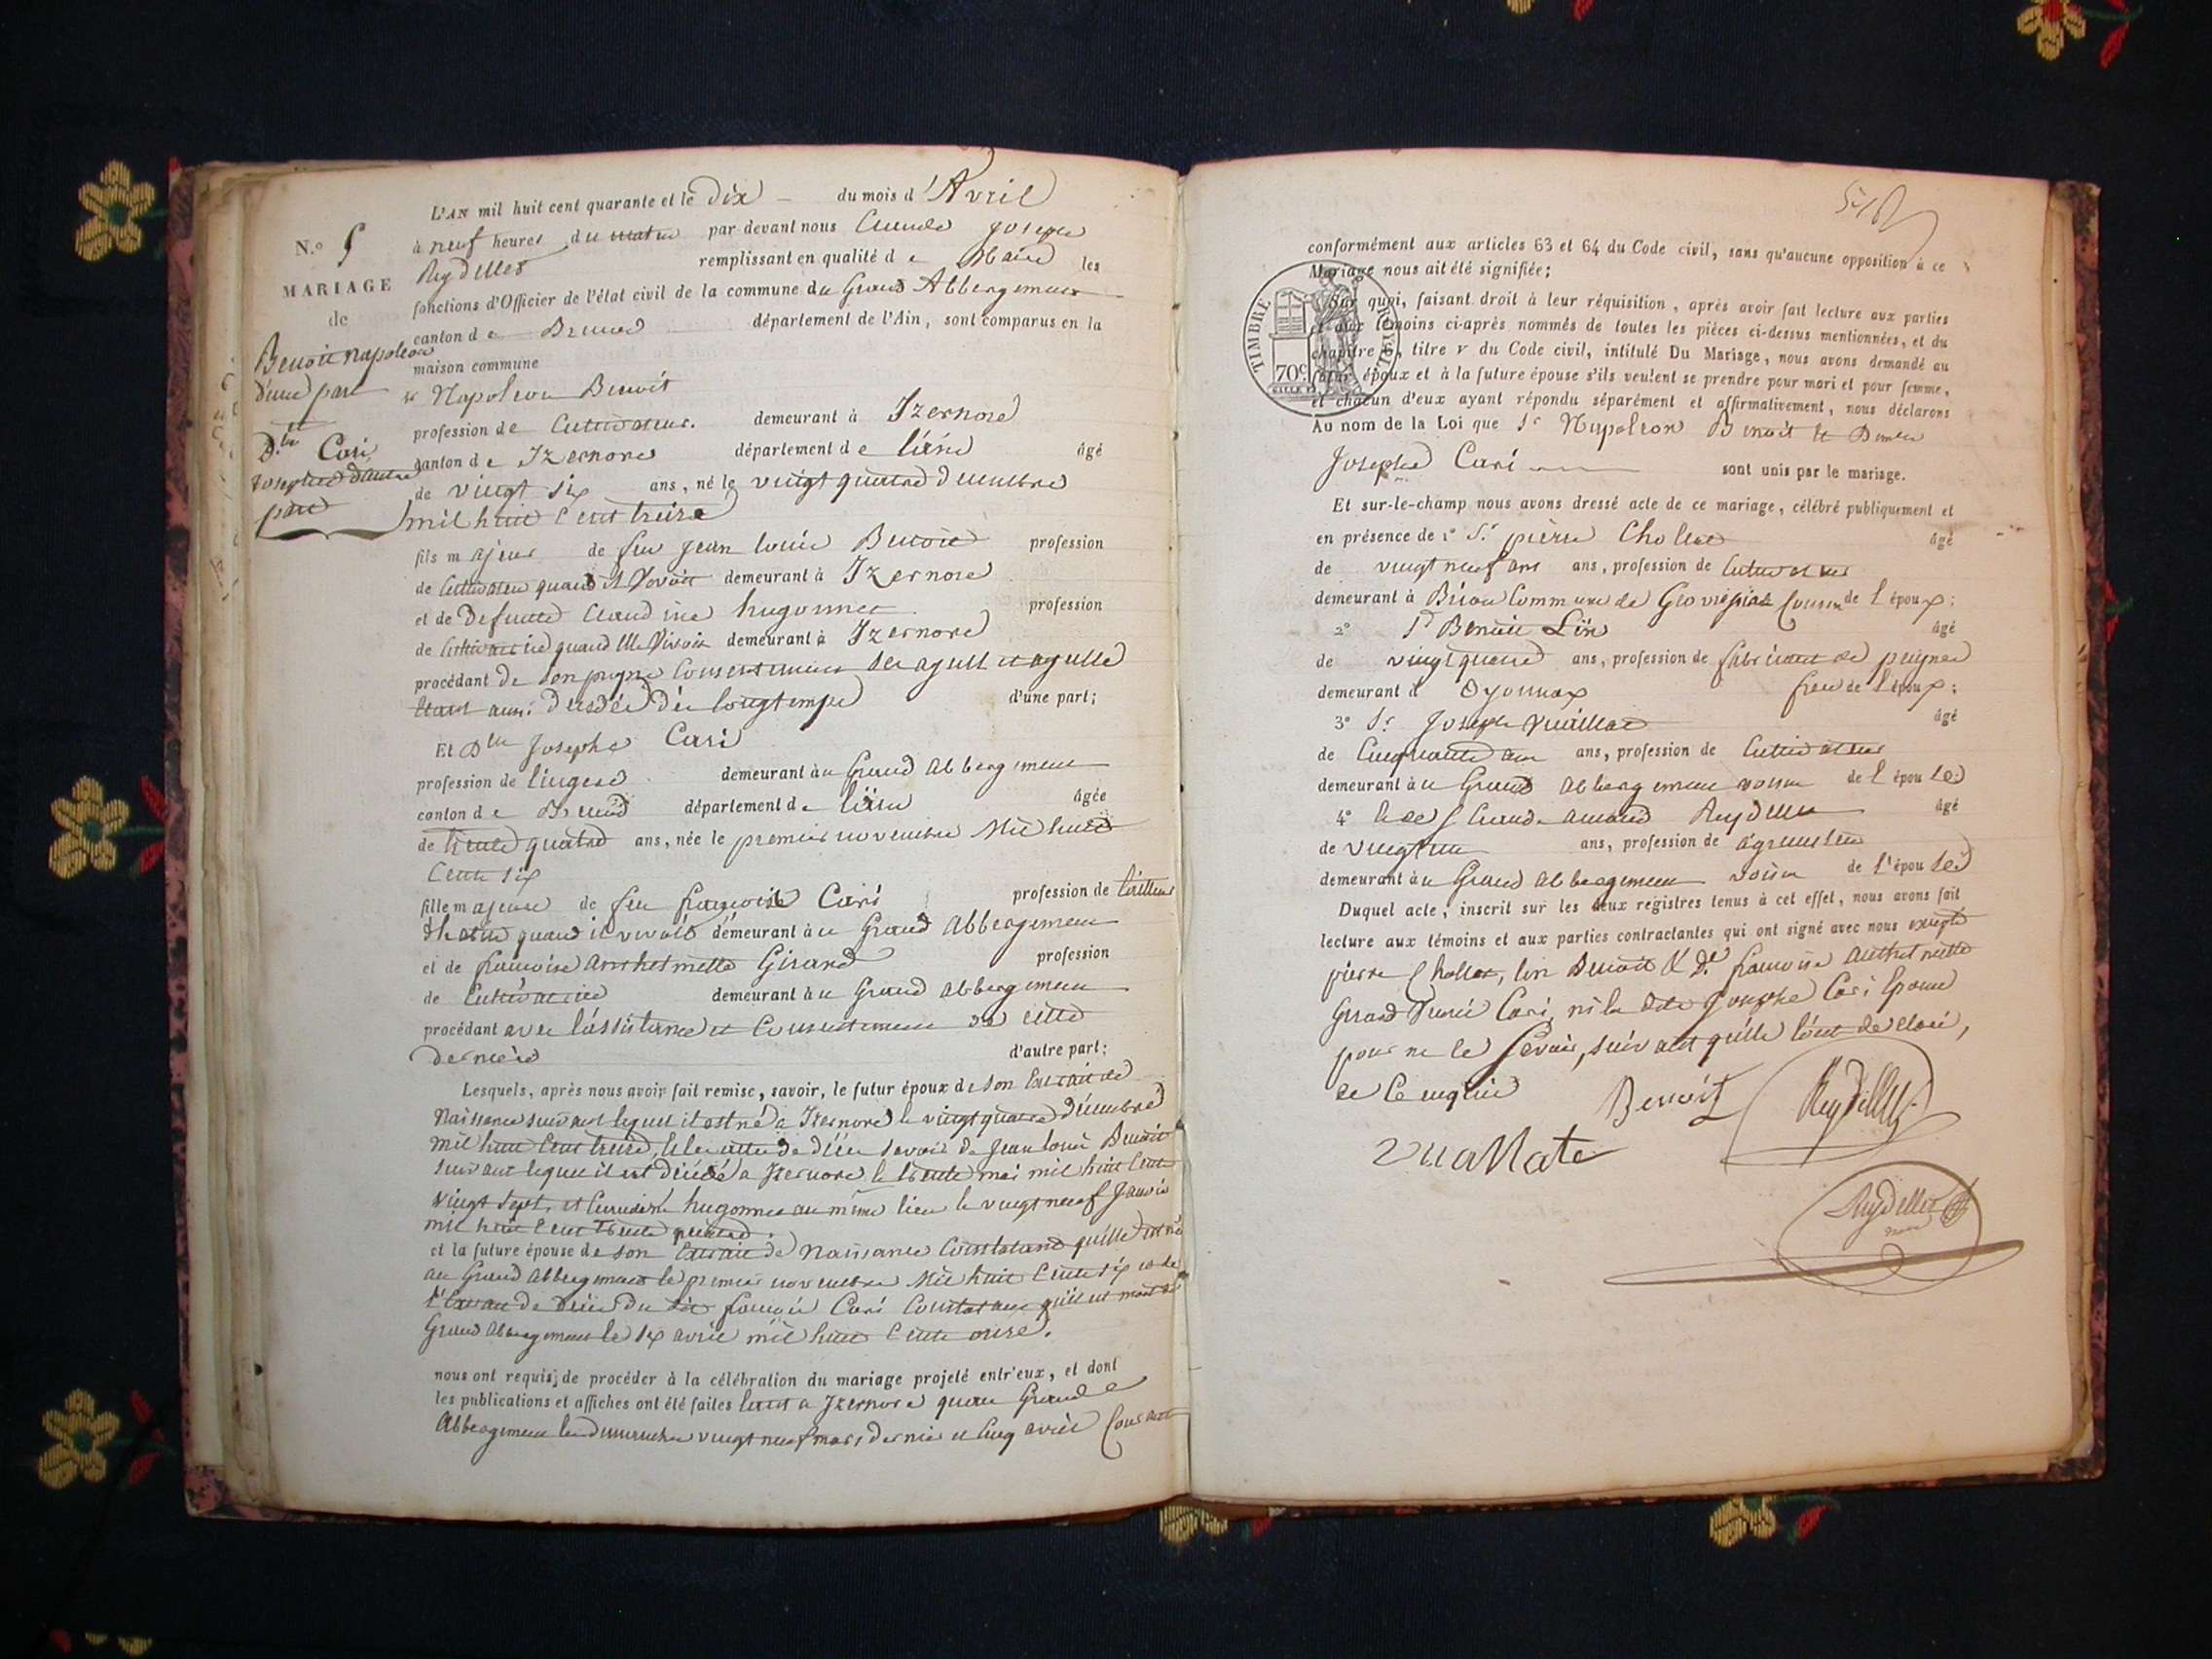 N.º 5
MARIAGE
de
Benoit Napoléon
d'une part
et
Dlle Cari
Josephe d'autre
part
L'AN mil huit cent quarante et le Dix du mois d'Avril
à neuf heures du matin par-devant nous Claude Joseph
Reydellet remplissant en qualité de Maire les
fonctions d'Officier de l'état civil de la commune du Grand Abbergement
canton de Brenod département de l'Ain, sont comparus en la
maison commune
Sr Napoleon Benoit
profession de Cultivateur. demeurant à Izernore
canton de Izernore département de l'ain âgé
de vingt six ans, né le vingt quatre décembre
mil huit Cent treize
fils majeur de feu Jean Louis Benoit profession
de Cultivateur quand il vivait demeurant à Izernore
et de Defunte Claudine hugonnet profession
de Cultivatrice quand elle vivait demeurant à Izernore
procédant de son propre Consentement ses ayeuls et ayeulle
étant aussi décédés dès longtemps d'une part;
Et Dlle Josephe Cari
profession de lingere demeurant au Grand abbergement
canton de Brenod département de l'ain âgée
de trente quatre ans, née le premier novembre Mil huit
Cent six
fille majeure de feu françois Cari profession de tailleur
d'habits quand il vivait demeurant au Grand Abbergement
et de françoise anthelmette Girand profession
de Cultivatrice demeurant au Grand abbergement
procédant avec l'assistance et Consentement de cette
derniere d'autre part;
Lesquels, après nous avoir fait remise, savoir, le futur époux de son Extrait de
Naissance suivant lequel il est né à Izernore le vingt quatre décembre
mil huit Cent treize, de Jean Louis Benoit
suivant lequel il est décédé a Izernore le trente mai mil huit Cent
vingt sept, et Claudine hugonnet au même lieu le vingt neuf Janvier
mil huit Cent trente quatre.
et la future épouse de son Extrait de Naissance Constatant quelle est née
au Grand abbergement le premier novembre Mil huit Cent six et de
l'Extrait de décès du dit françois Cari Constatant qu'il est mort au
Grand abbergement le six avril mil huit Cent onze.
nous ont requis de procéder à la célébration du mariage projeté entr'eux, et dont
les publications et affiches ont été faites tant a Izernore quau Grand
Abbergement les dimanches vingt neuf mars dernier et Cinq avril Courant
conformément aux articles 63 et 64 du Code civil, sans qu'aucune opposition à ce
Mariage nous ait été signifiée;
TIMBRE ROYAL
70c.
Sur quoi, faisant droit à leur réquisition, après avoir fait lecture aux parties
et aux témoins ci-après nommés de toutes les pièces ci-dessus mentionnées, et du
chapitre 6, titre v du Code civil, intitulé Du Mariage, nous avons demandé au
futur époux et à la future épouse s'ils veulent se prendre pour mari et pour femme,
et chacun d'eux ayant répondu séparément et affirmativement, nous déclarons
Au nom de la Loi que Sr Napoleon Benoit et Dmlle
Josephe Cari sont unis par le mariage.
Et sur-le-champ nous avons dressé acte de ce mariage, célébré publiquement et
en présence de 1º Sr pierre Chollet âgé
de vingt neuf ans ans, profession de Cultivateur
demeurant à Commune de Cousin de l'époux;
2º Sr Benoit Lin âgé
de vingt quatre ans, profession de fabricant de peignes
demeurant à Oyonnax frere de l'époux;
3º Sr Joseph Vuaillat âgé
de Cinquante ans, profession de Cultivateur
demeurant au Grand abbergement voisin de l'épouse
4º Claude amand Reydellet âgé
de vingt un ans, profession de agriculteur
demeurant au Grand abbergement voisin de l'épouse
Duquel acte, inscrit sur les deux registres tenus à cet effet, nous avons fait
lecture aux témoins et aux parties contractantes qui ont signé avec nous excepté
pierre Chollet, lin Benoit & De françoise anthelmette
Girand Cari, ni la dite Josephe Cari épouse
pour ne le Savoir, suivant quelle l'ont déclaré,
de Ce enquis
Benoit Reydellet
Vuallate
Reydellet
maire